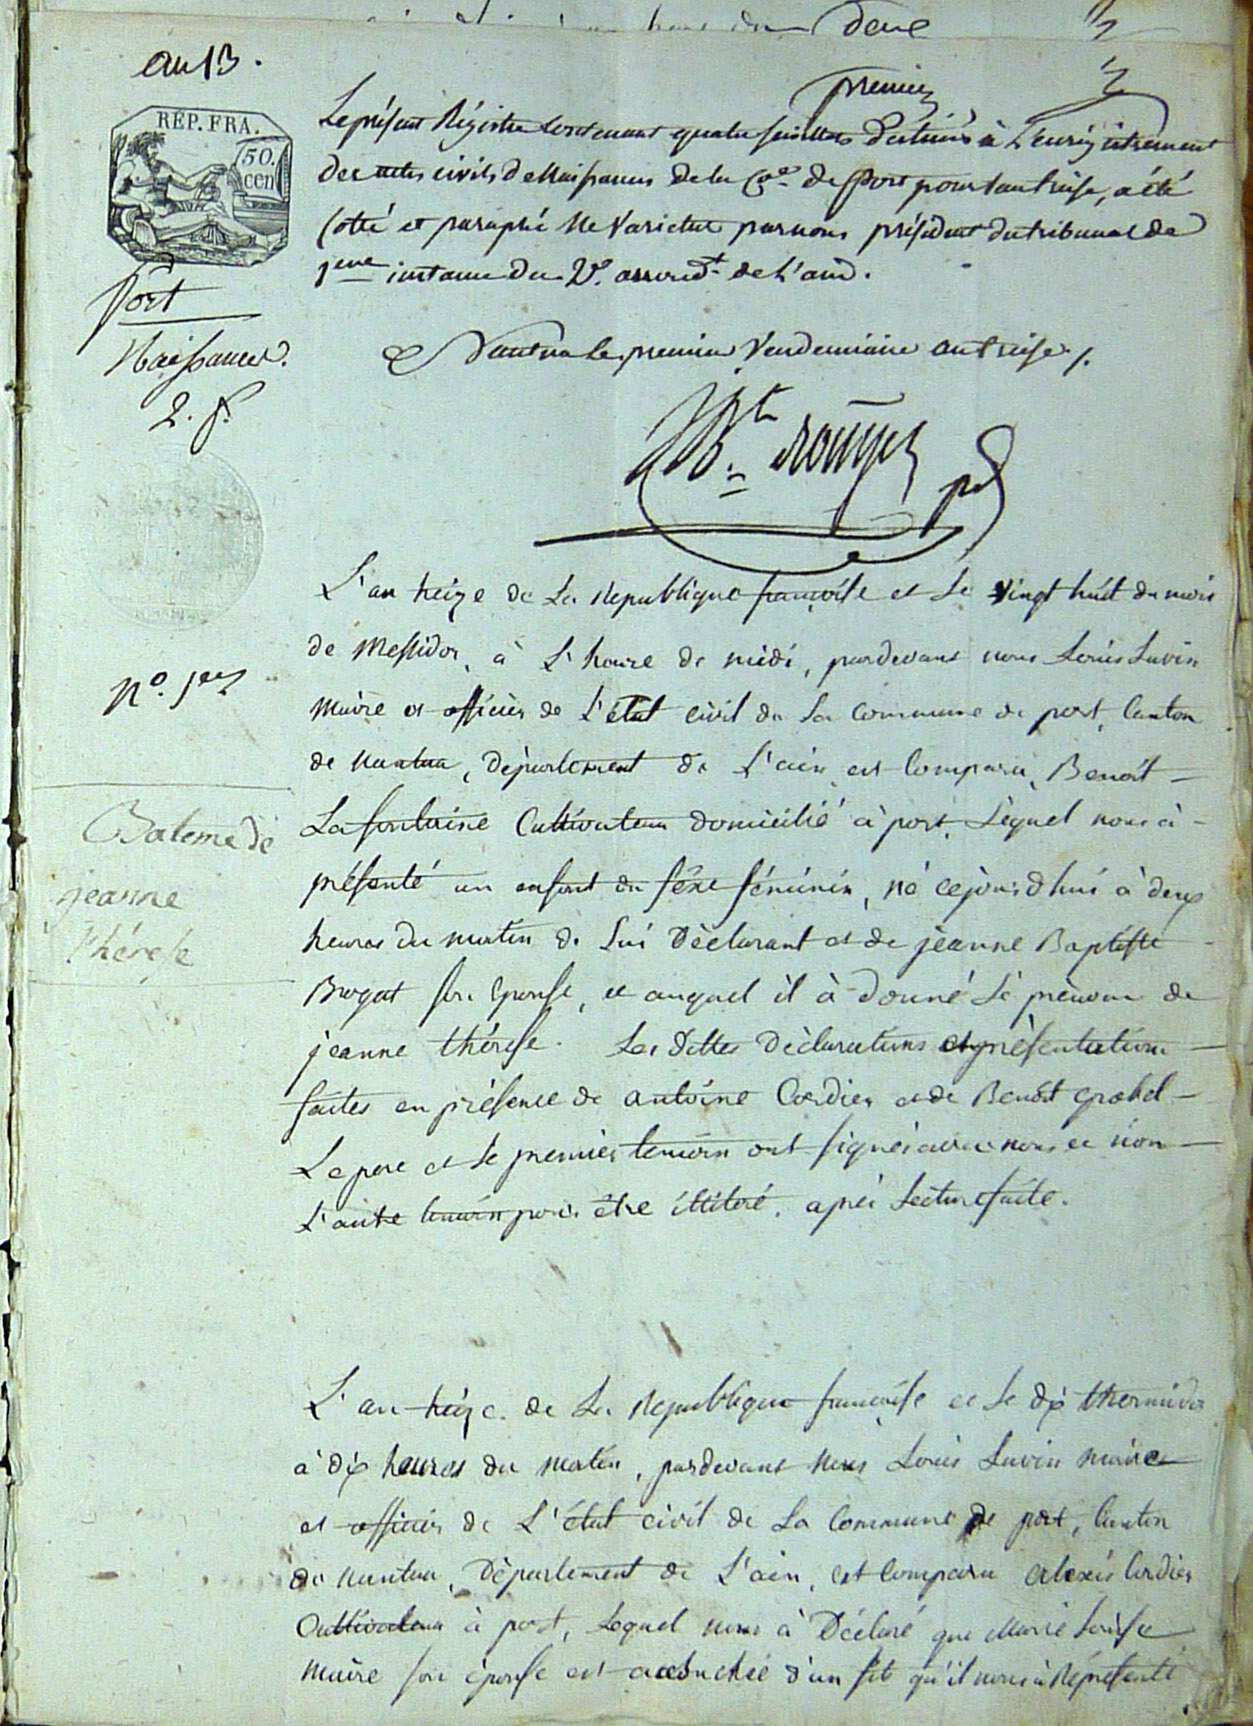 deux
an 13.
premier
RÉP. FRA.
50.
cen
Le présent Régistre contenant quatre feuillets destinés à L'enrégistrement
des actes civils de Naissances de la C.ne de Port pour l'an treise, a été
Cotté et paraphé Ne Varietur par nous président du tribunal de
1ere instance du 2e. arrond.t de L'ain.
Port
Naissances.
2. f.
Nantua le premier Vendemiaire an treise ./.
B.te rouyer pd
L'an treize de La République françoise et Le vingt huit du mois
de Messidor, à L'heure de midi, pardevant nous Louis Luvin
N.o 1er
Maire et officier de L'état civil de La Commune de port, Canton
de Nantua, Département de L'ain est Comparu, Benoit
La fontaine Cultivateur domicilié à port, Lequel nous à
Jeanne
Thérese
présenté un enfant du séxe féminin, né cejourd'hui à deux
heures du matin de Lui Déclarant et de jeanne Baptiste
Brogat son Epouse, et auquel il à donné Le prénom de
jeanne thérese. Les dittes Déclarations et présentation
faites en présence de antoine Cordier et de Benoit grobel
Le pere et Le premier temoin ont signés avec nous et non
L'autre temoin pour être illiteré, après Lecture faite.
L'an treize de La République françoise et Le dix thermidor
à dix heures du matin, pardevant nous Louis Luvin maire
et officier de L'état civil de La Commune de port, Canton
de Nantua, Département de L'ain, est Comparu alexis Cordier
Cultivateur à port, Lequel nous à Déclaré que Marie Louise
Maire son épouse est accouchée d'un fils qu'il nous à Réprésenté